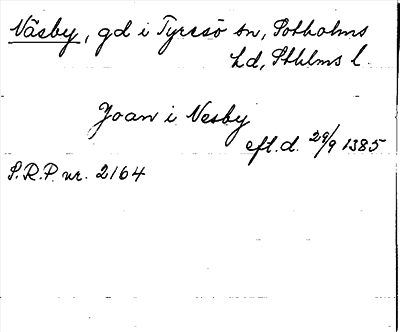 Näsby, gd i Tyresö sn, Sotholms
hd, Sthlms l.
Joan i Nesby
eft. d. 29/9 1385
S.R.P. nr. 2164